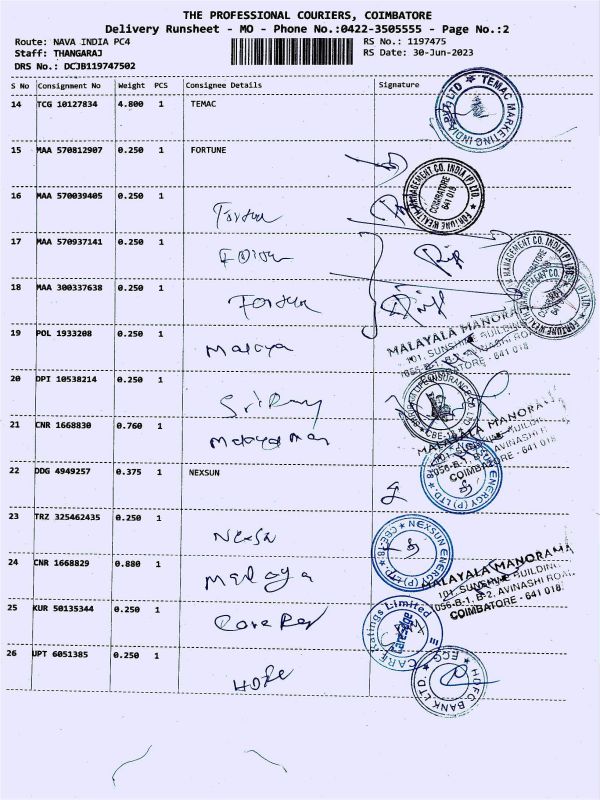 THE PROFESSIONAL COURIERS, COIMBATORE
Delivery Runsheet - MO - Phone No.:0422-3505555 - Page No.:2
Route: NAVA INDIA PC4
RS No.: 1197475
Staff: THANGARAJ
RS Date: 30-Jun-2023
DRS No.: DCJB119747502
S No Consignment No Weight PCS Consignee Details Signature
14 TCG 10127834 4.800 1 TEMAC
TEMAC MARKETING INDIA (P) LTD
15 MAA 570812907 0.250 1 FORTUNE
FORTUNE WEALTH MANAGEMENT CO. INDIA (P) LTD.
COIMBATORE
641 018
16 MAA 570039405 0.250 1
17 MAA 570937141 0.250 1
18 MAA 300337638 0.250 1 Fortun
19 POL 1933208 0.250 1 Malaya
MALAYALA MANORAMA
101, SUNSHINE BUILDING
1056-B-1, B-2, AVINASHI ROAD
COIMBATORE - 641 018
20 DPI 10538214 0.250 1 SriRam
21 CNR 1668830 0.760 1 Malayaman
MALAYALA MANORAMA
101, SUNSHINE BUILDING
1056-B-1, B-2, AVINASHI ROAD
COIMBATORE - 641 018
22 DDG 4949257 0.375 1 NEXSUN
23 TRZ 325462435 0.250 1 Nexsu
NEXSUN ENERGY (P) LTD
CBE-18
24 CNR 1668829 0.880 1 Malaya
MALAYALA MANORAMA
101, SUNSHINE BUILDING
1056-B-1, B-2, AVINASHI ROAD
COIMBATORE - 641 018
25 KUR 50135344 0.250 1 Care Rat
CARE Ratings Limited
26 UPT 6051385 0.250 1 HDFC
HDFC BANK LTD.